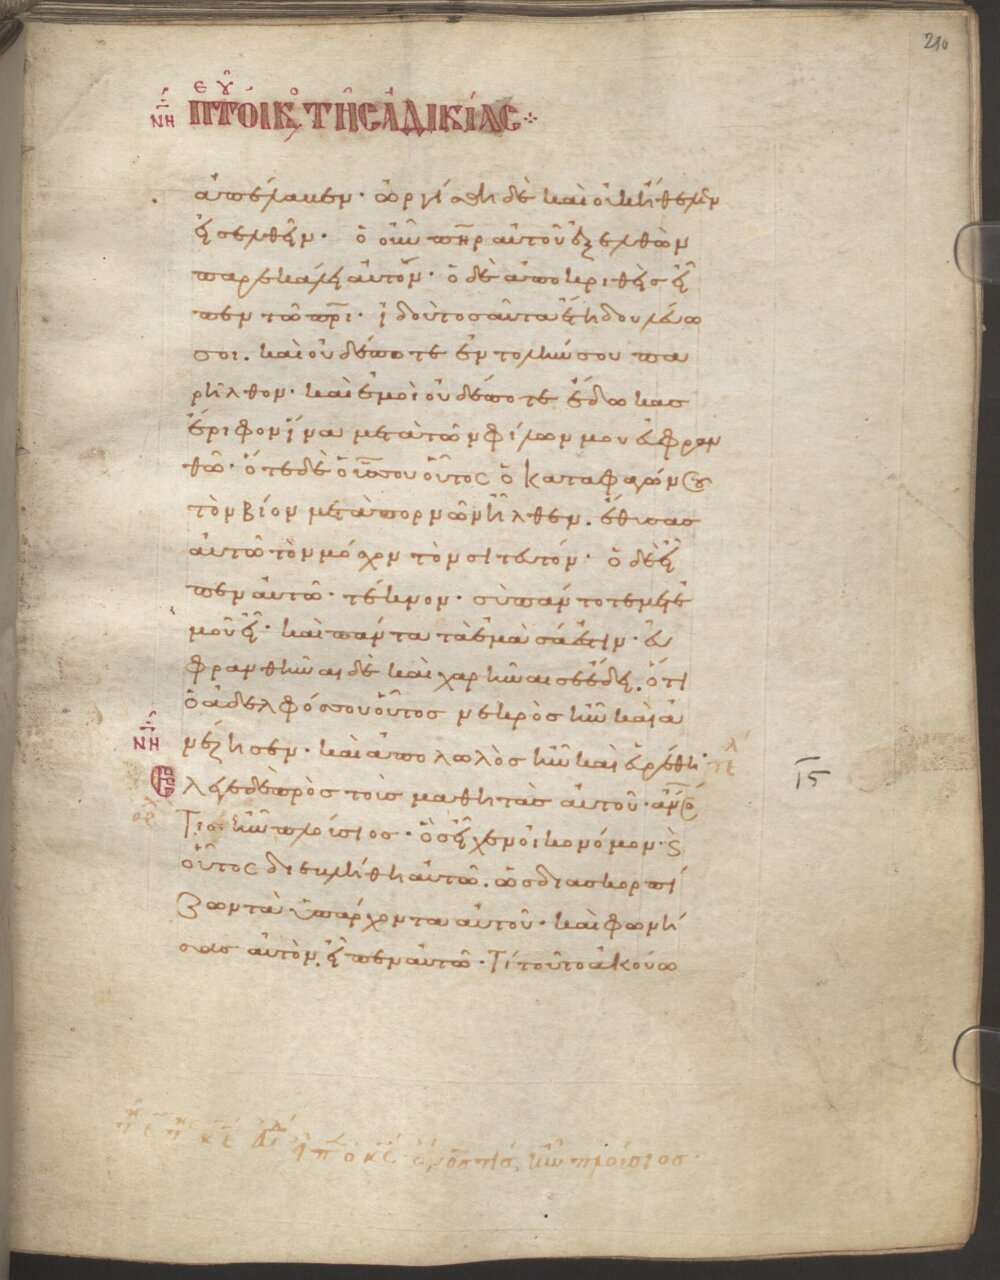 210
ΝΗ Π Τ ΟΙΚ ΤῆC ἈΔΙΚΊΑC
ἀπέλαβεν· ὠργίσθη δὲ καὶ οὐκ ἤθελεν
εἰσελθεῖν· ὁ οὖν πηρ αὐτοῦ ἐξελθὼν
παρεκάλει αὐτόν· ὁ δὲ ἀποκριθεὶς εἶ
πεν τῶ πρι· ἰδοὺ τοσαῦτα ἔτη δουλεύω
σοι. καὶ οὐδέποτε ἐντολήν σου πα
ρῆλθον· καὶ ἐμοὶ οὐδέποτε ἔδωκας
ἔριφον ἵνα μετὰ τῶν φίλων μου εὐφραν
θῶ· ὅτε δὲ ὁ υἱός σου οὗτος ὁ καταφαγών σου
τὸν βίον μετὰ πορνῶν ἦλθεν. ἔθυσας
αὐτῶ τὸν μόσχον τὸν σιτευτόν· ὁ δὲ εἶ
πεν αὐτῶ· τέκνον· σὺ πάντοτε μετ ἐ
μοῦ εἶ· καὶ πάντα τὰ ἐμὰ σά ἐστιν· εὐ
φρανθῆναι δὲ καὶ χαρῆναι σε ἔδει. ὅτι
ὁ ἀδελφός σου οὗτος νεκρὸς ἦν καὶ ἀ
νέζησεν· καὶ ἀπολωλὸς ἦν καὶ εὑρέθη·
ΝΗ
Ἔλεγε δὲ πρὸς τοὺς μαθητὰς αὐτοῦ· ἀνος
τις ἦν πλούσιος· ὃς εἶχεν οἰκονόμον· καὶ
οὗτος διεβλήθη αὐτῶ. ὡς διασκορπί
ζων τὰ ὑπάρχοντα αὐτοῦ· καὶ φωνή
σας αὐτὸν. εἶπεν αὐτῶ· Τί τοῦτο ἀκούω
ἀνος τις ἦν πλούσιος·